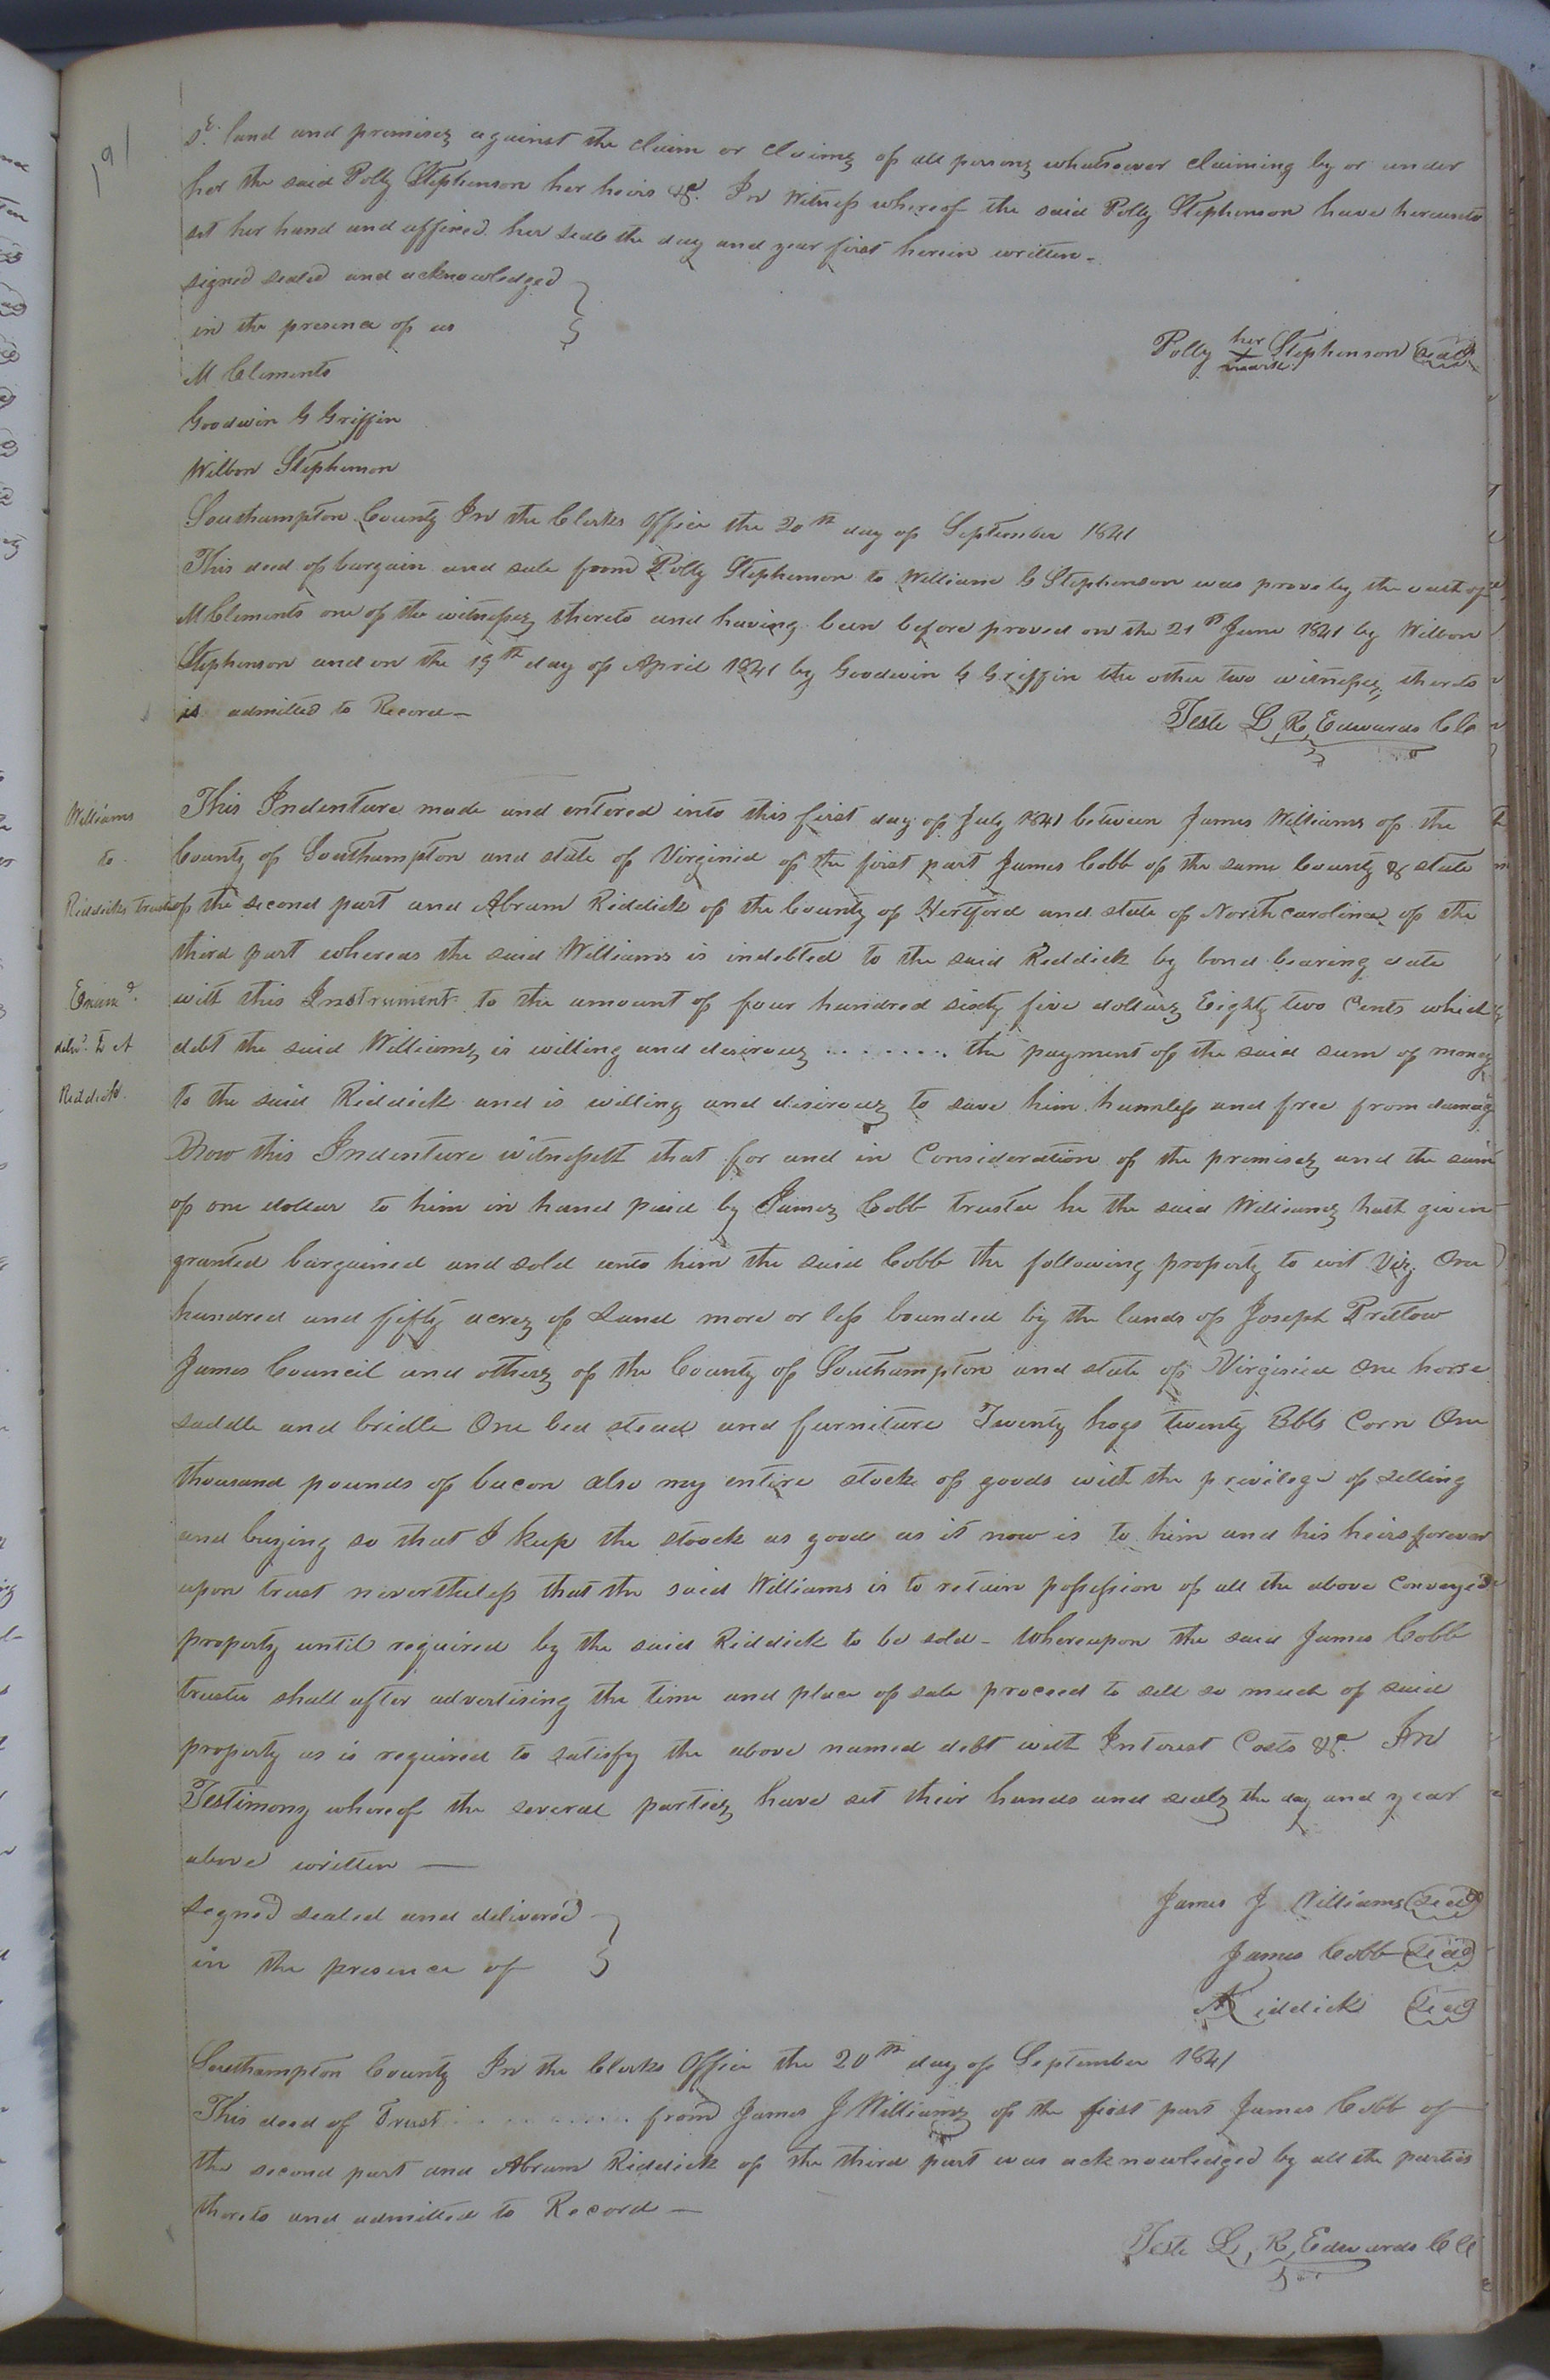 191
sd. land and premises against the claim or claims of all persons whatsoever claiming by or under
her the said Polly Stephenson her heirs &c. In Witness whereof the said Polly Stephenson have hereunto
set her hand and affixed her seal the day and year first herein written -
signed sealed and acknowledged
in the presence of us
Polly her X mark Stephenson Seal
M Clements
Goodwin G Griffin
Wilbon Stephenson
Southampton County In the Clerks Office the 20th day of September 1841
This deed of bargain and sale from Polly Stephenson to William G Stephenson was prove by the oath of
M Clements one of the witnesses thereto and having been before proved on the 21st June 1841 by Wilbon
Stephenson and on the 19th day of April 1841 by Goodwin G Griffin the other two witnesses thereto
is admitted to Record -
Teste L, R, Edwards ClC
Williams
to
Riddicks trust
Examd.
delivd. to A
Riddick
This Indenture made and entered into this first day of July 1841 between James Williams of the
County of Southampton and state of Virginia of the first part James Cobb of the same County & state
of the second part and Abram Riddick of the County of Hertford and state of North carolina of the
third part whereas the said Williams is indebted to the said Riddick by bond bearing date
with this Instrument to the amount of four hundred sixty five dollars Eighty two Cents which
debt the said Williams is willing and desirous ........ the payment of the said sum of money
to the said Riddick and is willing and desirous to save him harmless and free from damage
Now this Indenture witnesseth that for and in Consideration of the premises and the sum
of one dollar to him in hand paid by James Cobb trustee he the said Williams hath given
granted bargained and sold unto him the said Cobb the following property to wit Viz. One
hundred and fifty acres of Land more or less bounded by the lands of Joseph Pretlow
James Council and others of the County of Southampton and state of Virginia One horse
saddle and bridle One bed stead and furniture Twenty hogs twenty Bbls Corn One
thousand pounds of bacon also my entire stock of goods with the privilege of selling
and buying so that I keep the stoock as good as it now is to him and his heirs forever
upon trust nevertheless that the said Williams is to retain possession of all the above Conveyed
property until required by the said Riddick to be sold - Whereupon the said James Cobb
trustee shall after advertising the time and place of sale proceed to sell so much of said
property as is required to satisfy the above named debt with Interest Costs &c. In
Testimony whereof the several parties have set their hands and seals the day and year
above written —
Signed sealed and delivered
in the presence of
James J Williams Seal
James Cobb Seal
A Riddick Seal
Southampton County In the Clerks Office the 20th day of September 1841
This deed of Trust .......... from James J Williams of the first part James Cobb of
the second part and Abram Riddick of the third part was acknowledged by all the parties
thereto and admitted to Record —
Teste L, R, Edwards ClC